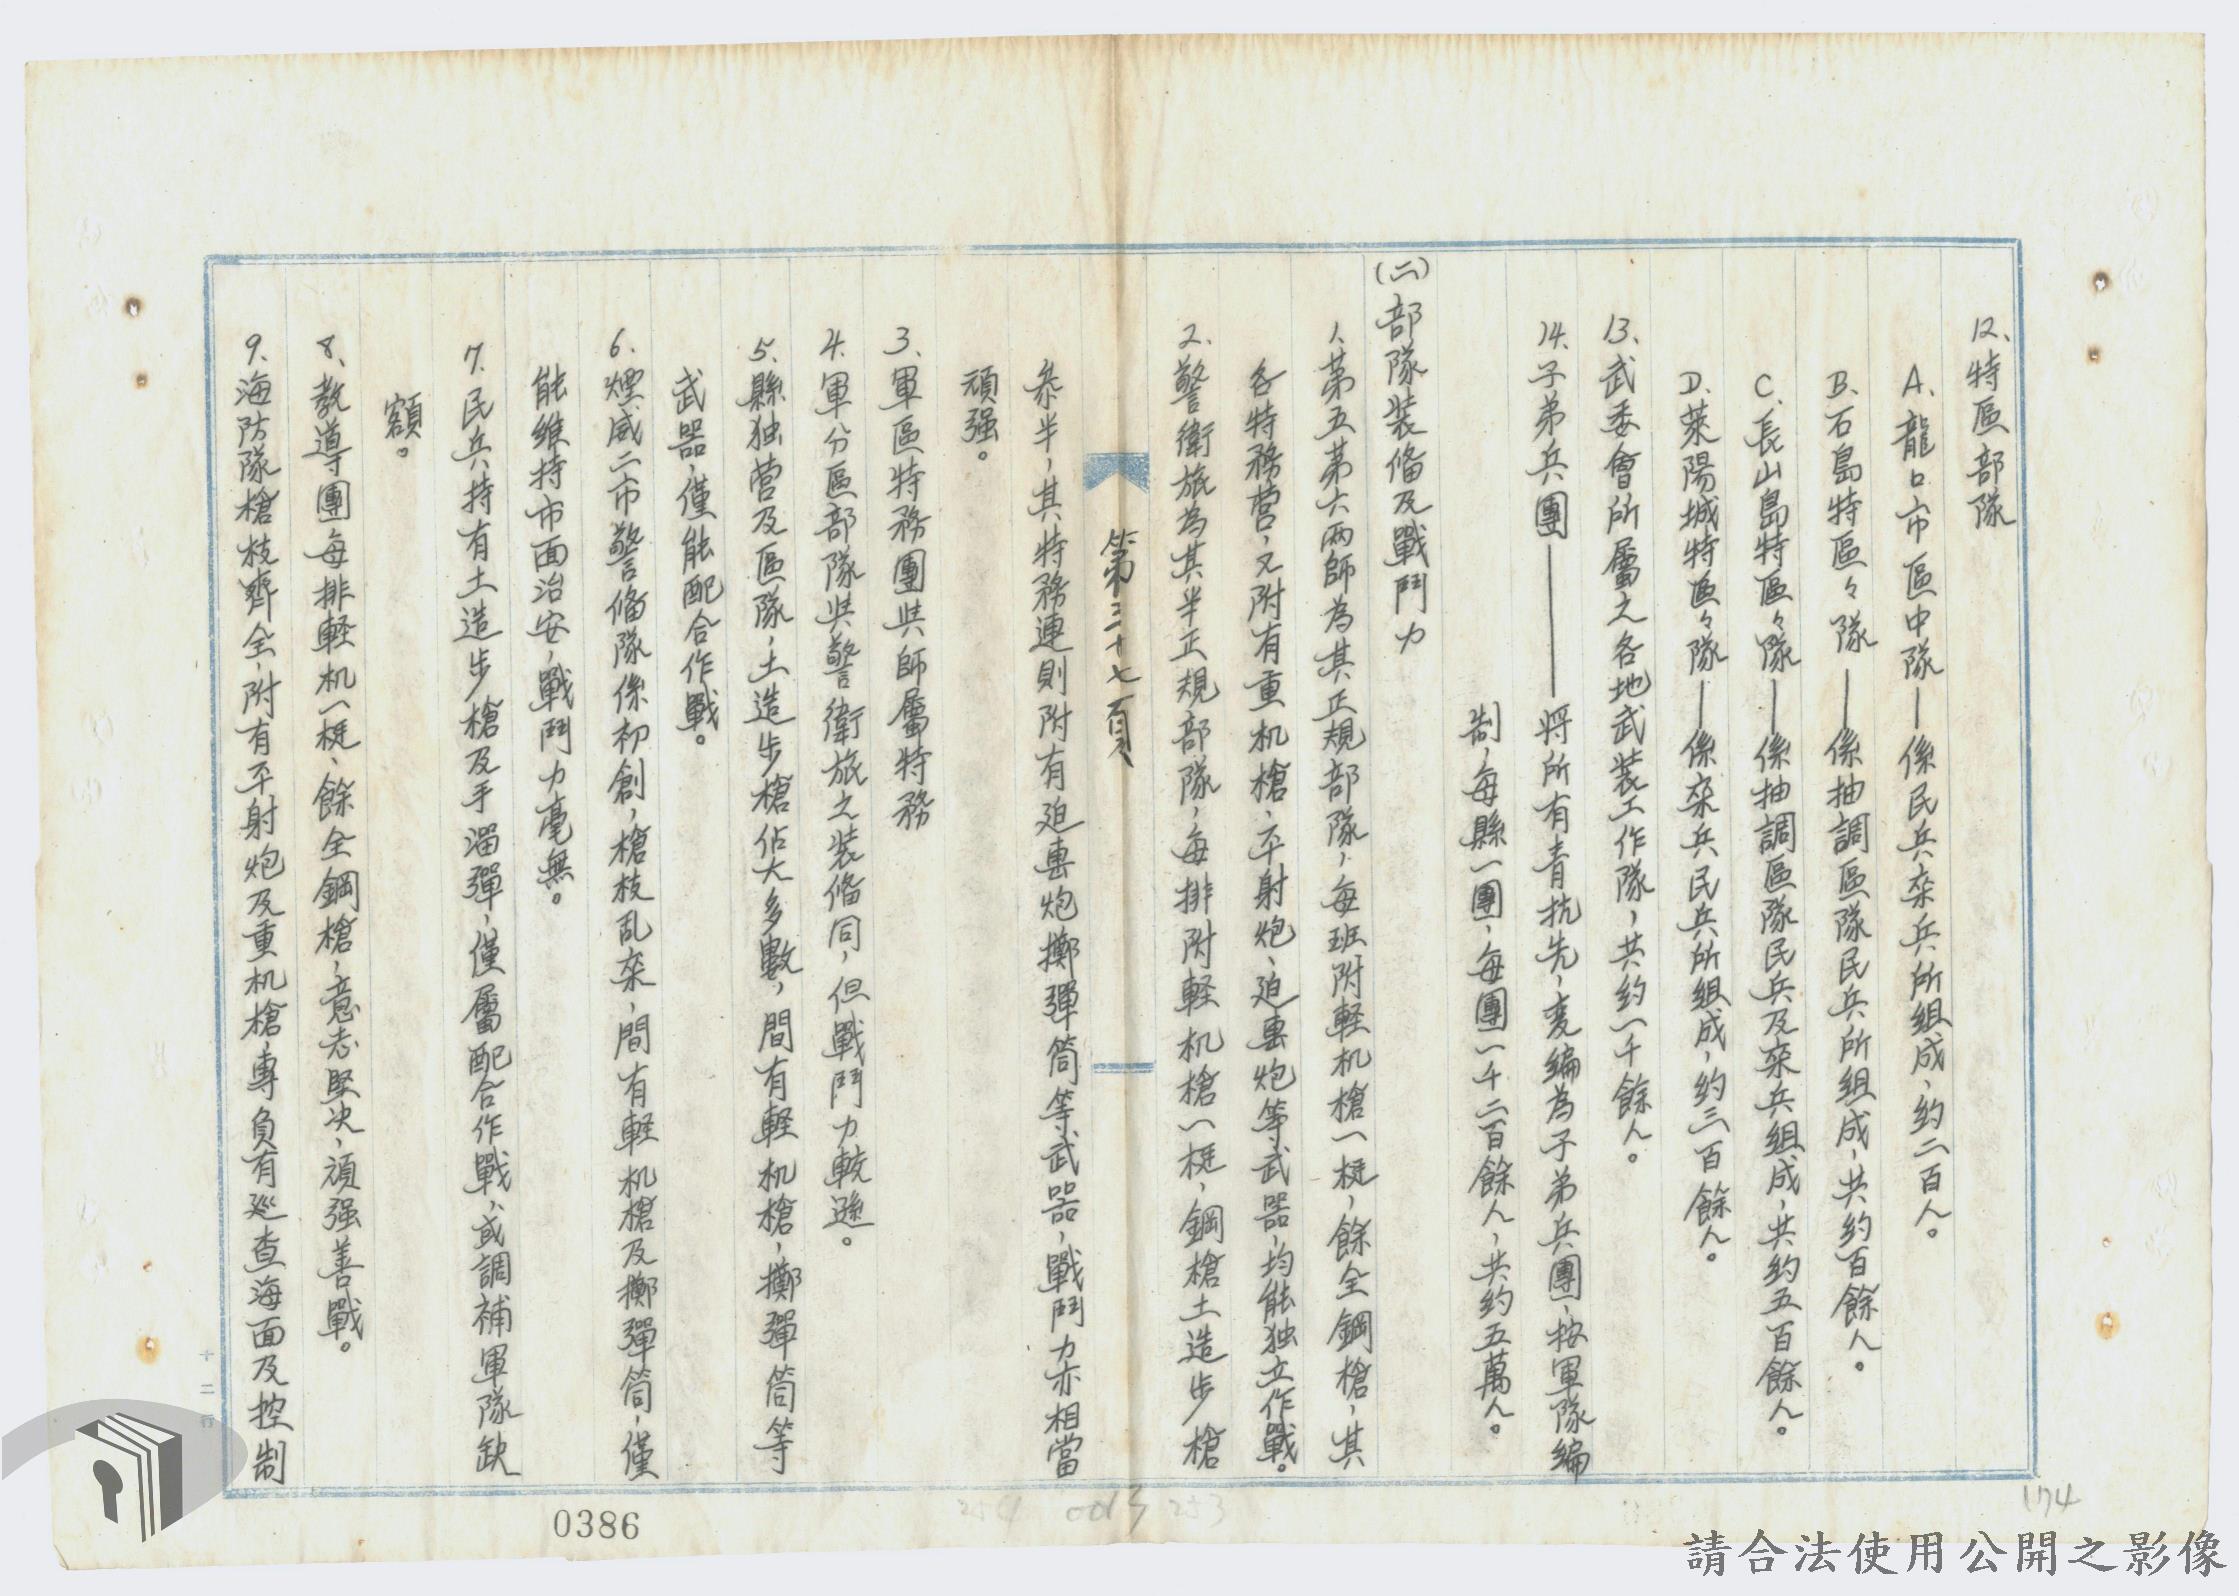 12、特區部隊
A、龍口市區中隊——係民兵杂兵所組成，約二百人。
B、石島特區々隊——係抽調區隊民兵所組成，共約百餘人。
C、長山島特區々隊——係抽調區隊民兵及杂兵組成，共約五百餘人。
D、萊陽城特區々隊——係杂兵民兵所組成，約三百餘人。
13、武委會所屬之各地武装工作隊，共約一千餘人。
14、子弟兵團————將所有青抗先，変編為子弟兵團，按軍隊編
制，每縣一團，每團一千二百餘人，共約五萬人。
(二)部隊装俻及戰鬥力
1、苐五苐六兩師為其正規部隊，每班附軽机槍一梃，餘全鋼槍，其
各特務营，又附有重机槍、平射炮、迫击炮等武器，均能独立作戰。
2、警衛旅為其半正規部隊，每排附軽机槍一梃，鋼槍土造步槍
第三十七頁
叅半，其特務連則附有迫击炮擲彈筒等武器，戰鬥力亦相當
頑强。
3、軍區特務團與師屬特務
4、軍分區部隊與警衛旅之装俻同，但戰鬥力較遜。
5、縣独营及區隊，土造步槍佔大多數，間有軽机槍，擲彈筒等
武器，僅能配合作戰。
6、煙威二市警俻隊係初創，槍枝乱杂，間有軽机槍及擲彈筒，僅
能維持市面治安，戰鬥力毫無。
7、民兵持有土造步槍及手溜彈，僅屬配合作戰，或調補軍隊缺
額。
8、教導團每排軽机一梃、餘全鋼槍，意志堅决，頑强善戰。
9、海防隊槍枝齊全，附有平射炮及重机槍，專負有巡查海面及控制
十二行
0386
174
請合法使用公開之影像